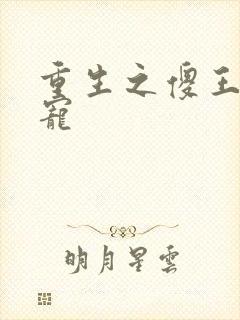 重生之傻王
寵
明月星雲